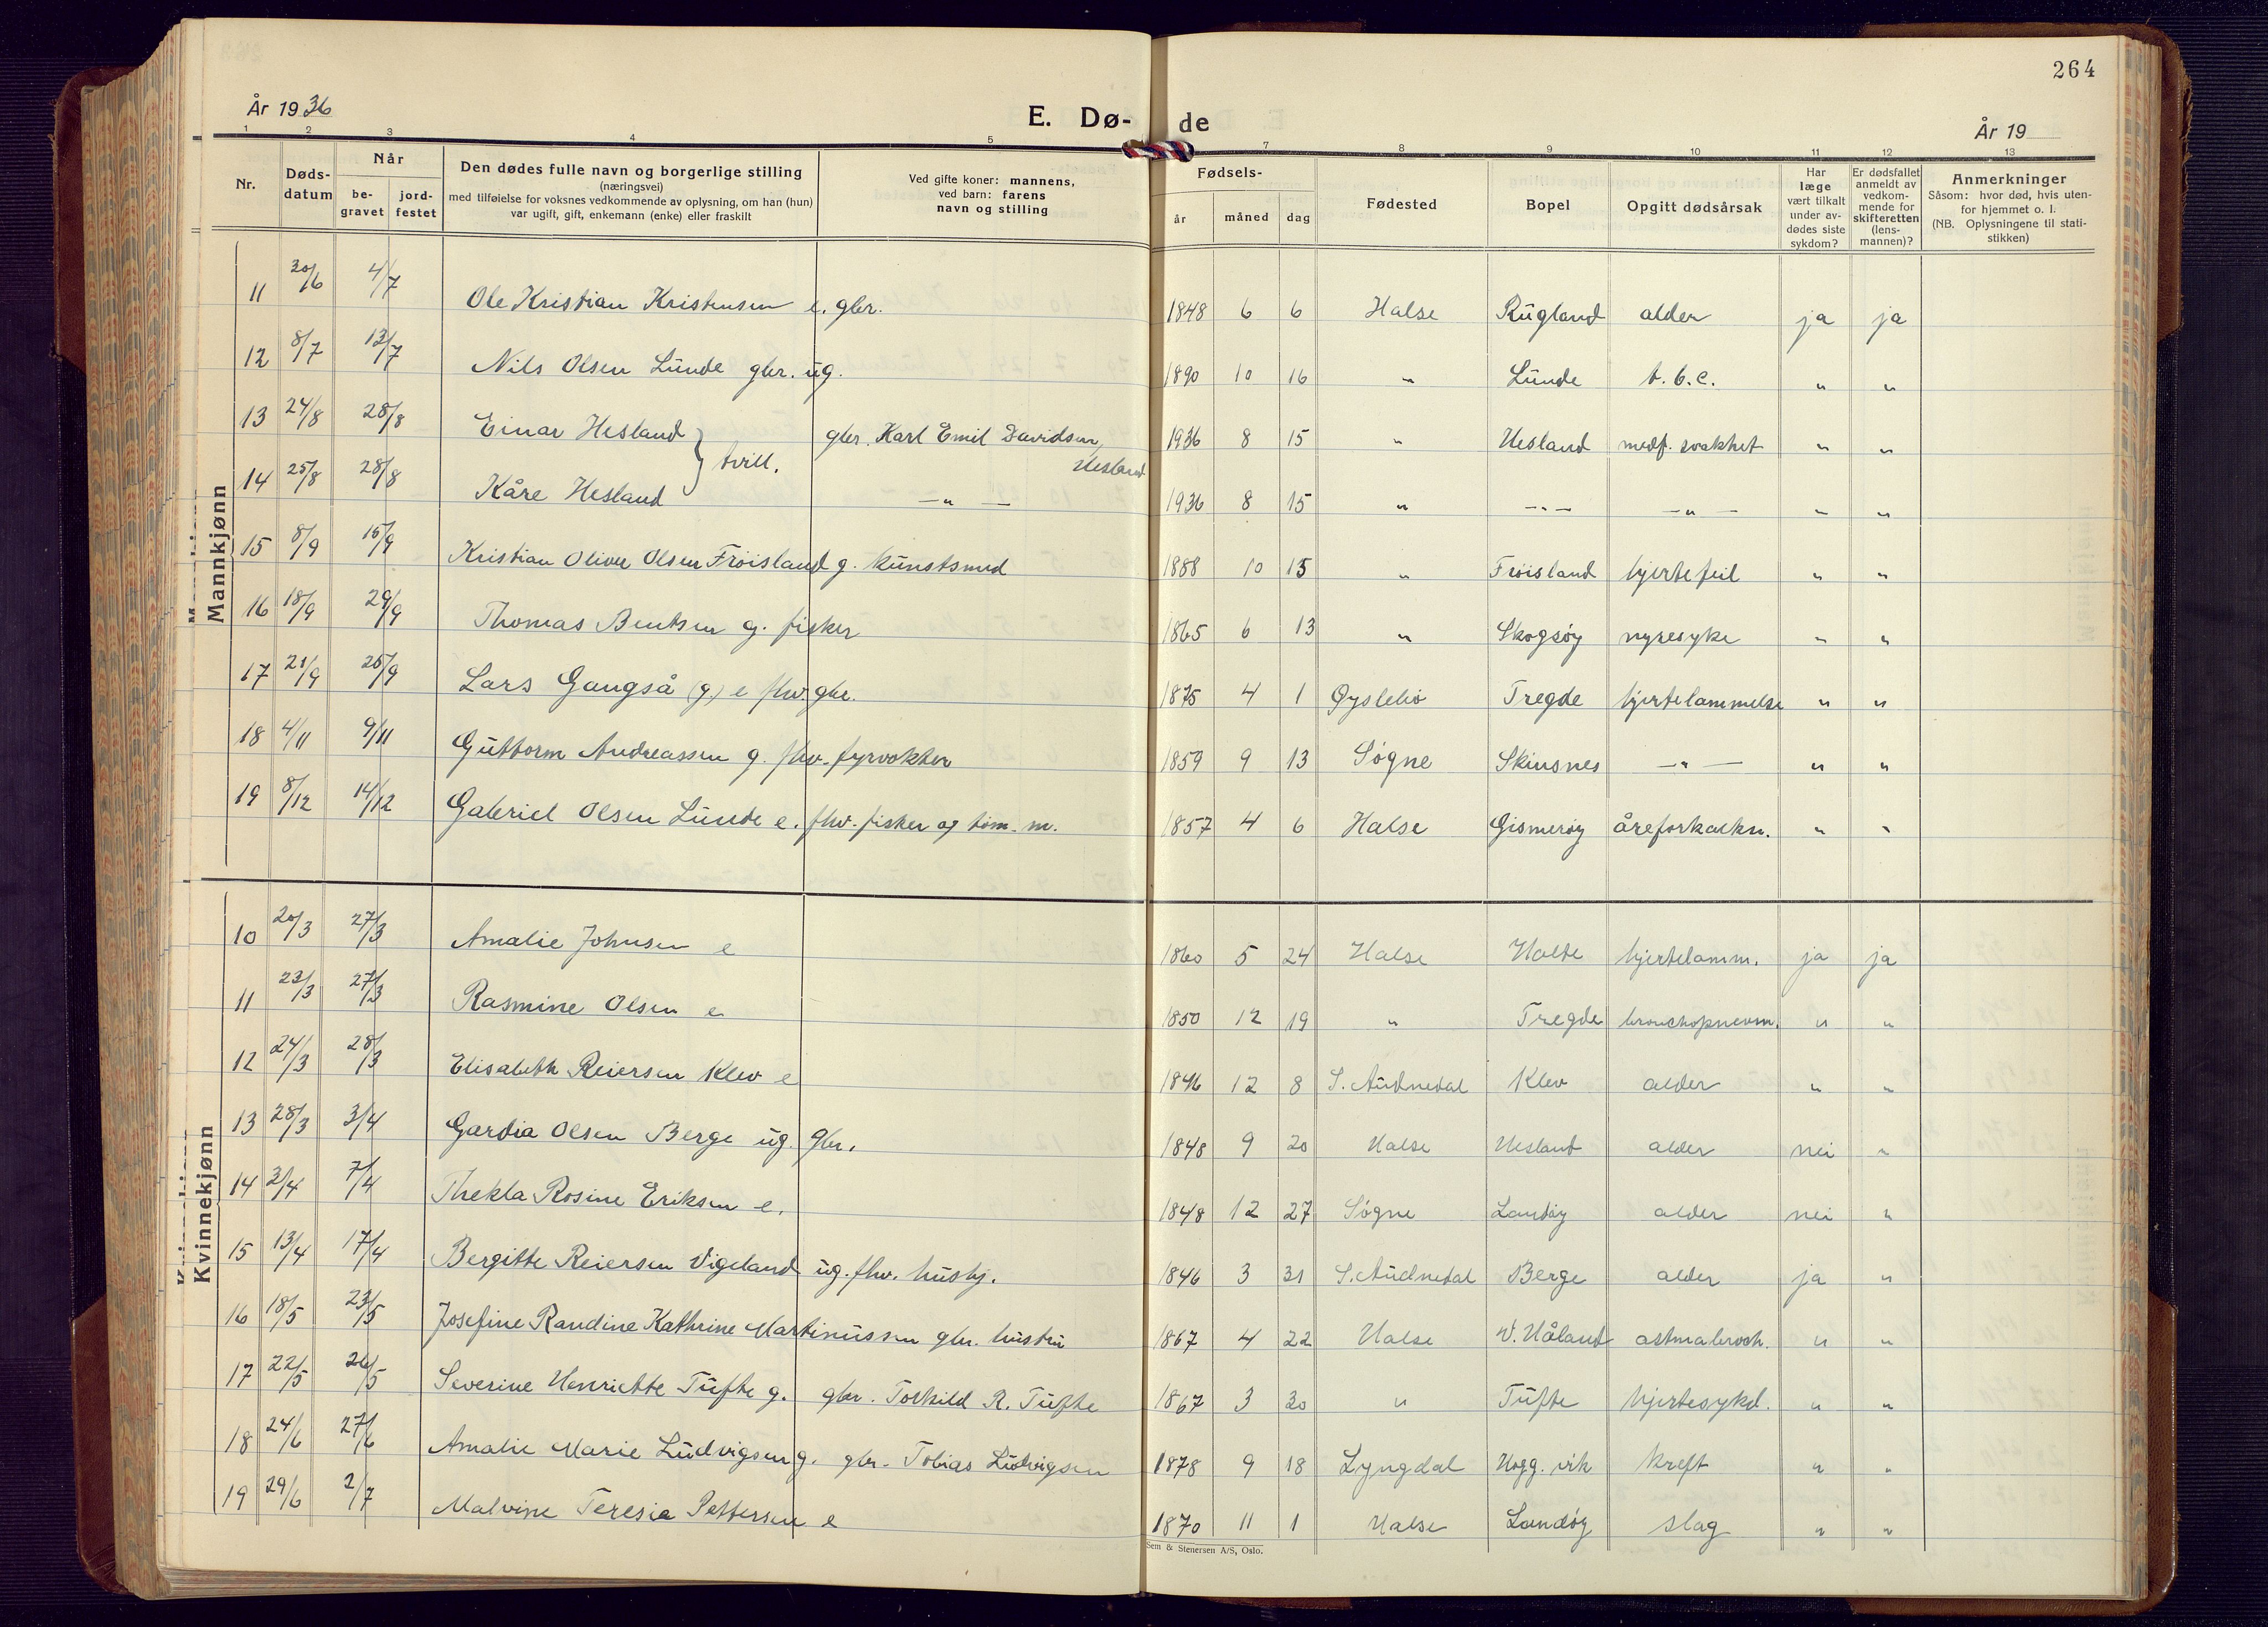 264
År 1936
E. Dø- de
År 19
1 2 3 4 5 7 8 9 10 11 12 13
Nr.
Døds-
datum
Når
be-
gravet
jord-
festet
Den dødes fulle navn og borgerlige stilling
(næringsvei)
med tilføielse for voksnes vedkommende av oplysning, om han (hun)
var ugift, gift, enkemann (enke) eller fraskilt
Ved gifte koner: mannens,
ved barn: farens
navn og stilling
Fødsels-
år måned dag
Fødested
Bopel
Opgitt dødsårsak
Har
læge
vært tilkalt
under av-
dødes siste
sykdom?
Er dødsfallet
anmeldt av
vedkom-
mende for
skifteretten
(lens-
mannen)?
Anmerkninger
Såsom: hvor død, hvis uten-
for hjemmet o. l.
(NB. Oplysningene til stati-
stikken)
Mannkjønn
11 30/6 4/7 Ole Kristian Kristensen e. gbr. 1848 6 6 Halse Rugland alder ja ja
12 8/7 13/7 Nils Olsen Lunde gbr. ug. 1890 10 16 " Lunde t.b.c. " "
13 24/8 28/8 Einar Hesland } tvill. gbr. Karl Emil Davidsen, Hesland 1936 8 15 " Hesland medf. svakhet " "
14 25/8 28/8 Kåre Hesland —"— 1936 8 15 " —"— —"— " "
15 8/9 15/9 Kristian Oliver Olsen Frøisland g. kunstsmed 1888 10 15 " Frøisland hjertefeil " "
16 18/9 29/9 Thomas Bentsen g. fisker 1865 6 13 " Skogsøy nyresyke " "
17 21/9 25/9 Lars Gangså (g.) e fhv. gbr. 1875 4 1 Øyslebø Tregde hjertelammelse " "
18 4/11 9/11 Guttorm Andreassen g. fhv. fyrvokter 1859 9 13 Søgne Skinsnes —"— " "
19 8/12 14/12 Gabriel Olsen Lunde e. fhv. fisker og tøm. m. 1857 4 6 Halse Gismerøy åreforkalkn. " "
Kvinnekjønn
10 20/3 27/3 Amalie Johnsen e 1860 5 24 Halse Holte hjertelamm. ja ja
11 23/3 27/3 Rasmine Olsen e 1850 12 19 " Tregde bronchopneum. " "
12 24/3 28/3 Elisabeth Reiersen Klev e 1846 12 8 S. Audnedal Klev alder " "
13 28/3 3/4 Gardia Olsen Berge ug. gbr. 1848 9 20 Halse Hesland alder nei "
14 2/4 7/4 Thekla Rosine Eriksen e. 1848 12 27 Søgne Landøy alder nei "
15 13/4 17/4 Bergitte Reiersen Vigeland ug. fhv. hushj. 1846 3 31 S. Audnedal Berge alder ja "
16 18/5 23/5 Josefine Randine Kathrine Martinussen gbr. hustru 1867 4 22 Halse V. Håland astmabroch. " "
17 22/5 26/5 Severine Henriette Tufte g. gbr. Torkild R. Tufte 1867 3 30 " Tufte hjertesykd. " "
18 24/6 27/6 Amalie Marie Ludvigsen g. gbr. Tobias Ludvigsen 1878 9 18 Lyngdal Hogg.vik kreft " "
19 29/6 2/7 Malvine Teresia Pettersen e 1870 11 1 Halse Landøy slag " "
Sem & Stenersen A/S, Oslo.